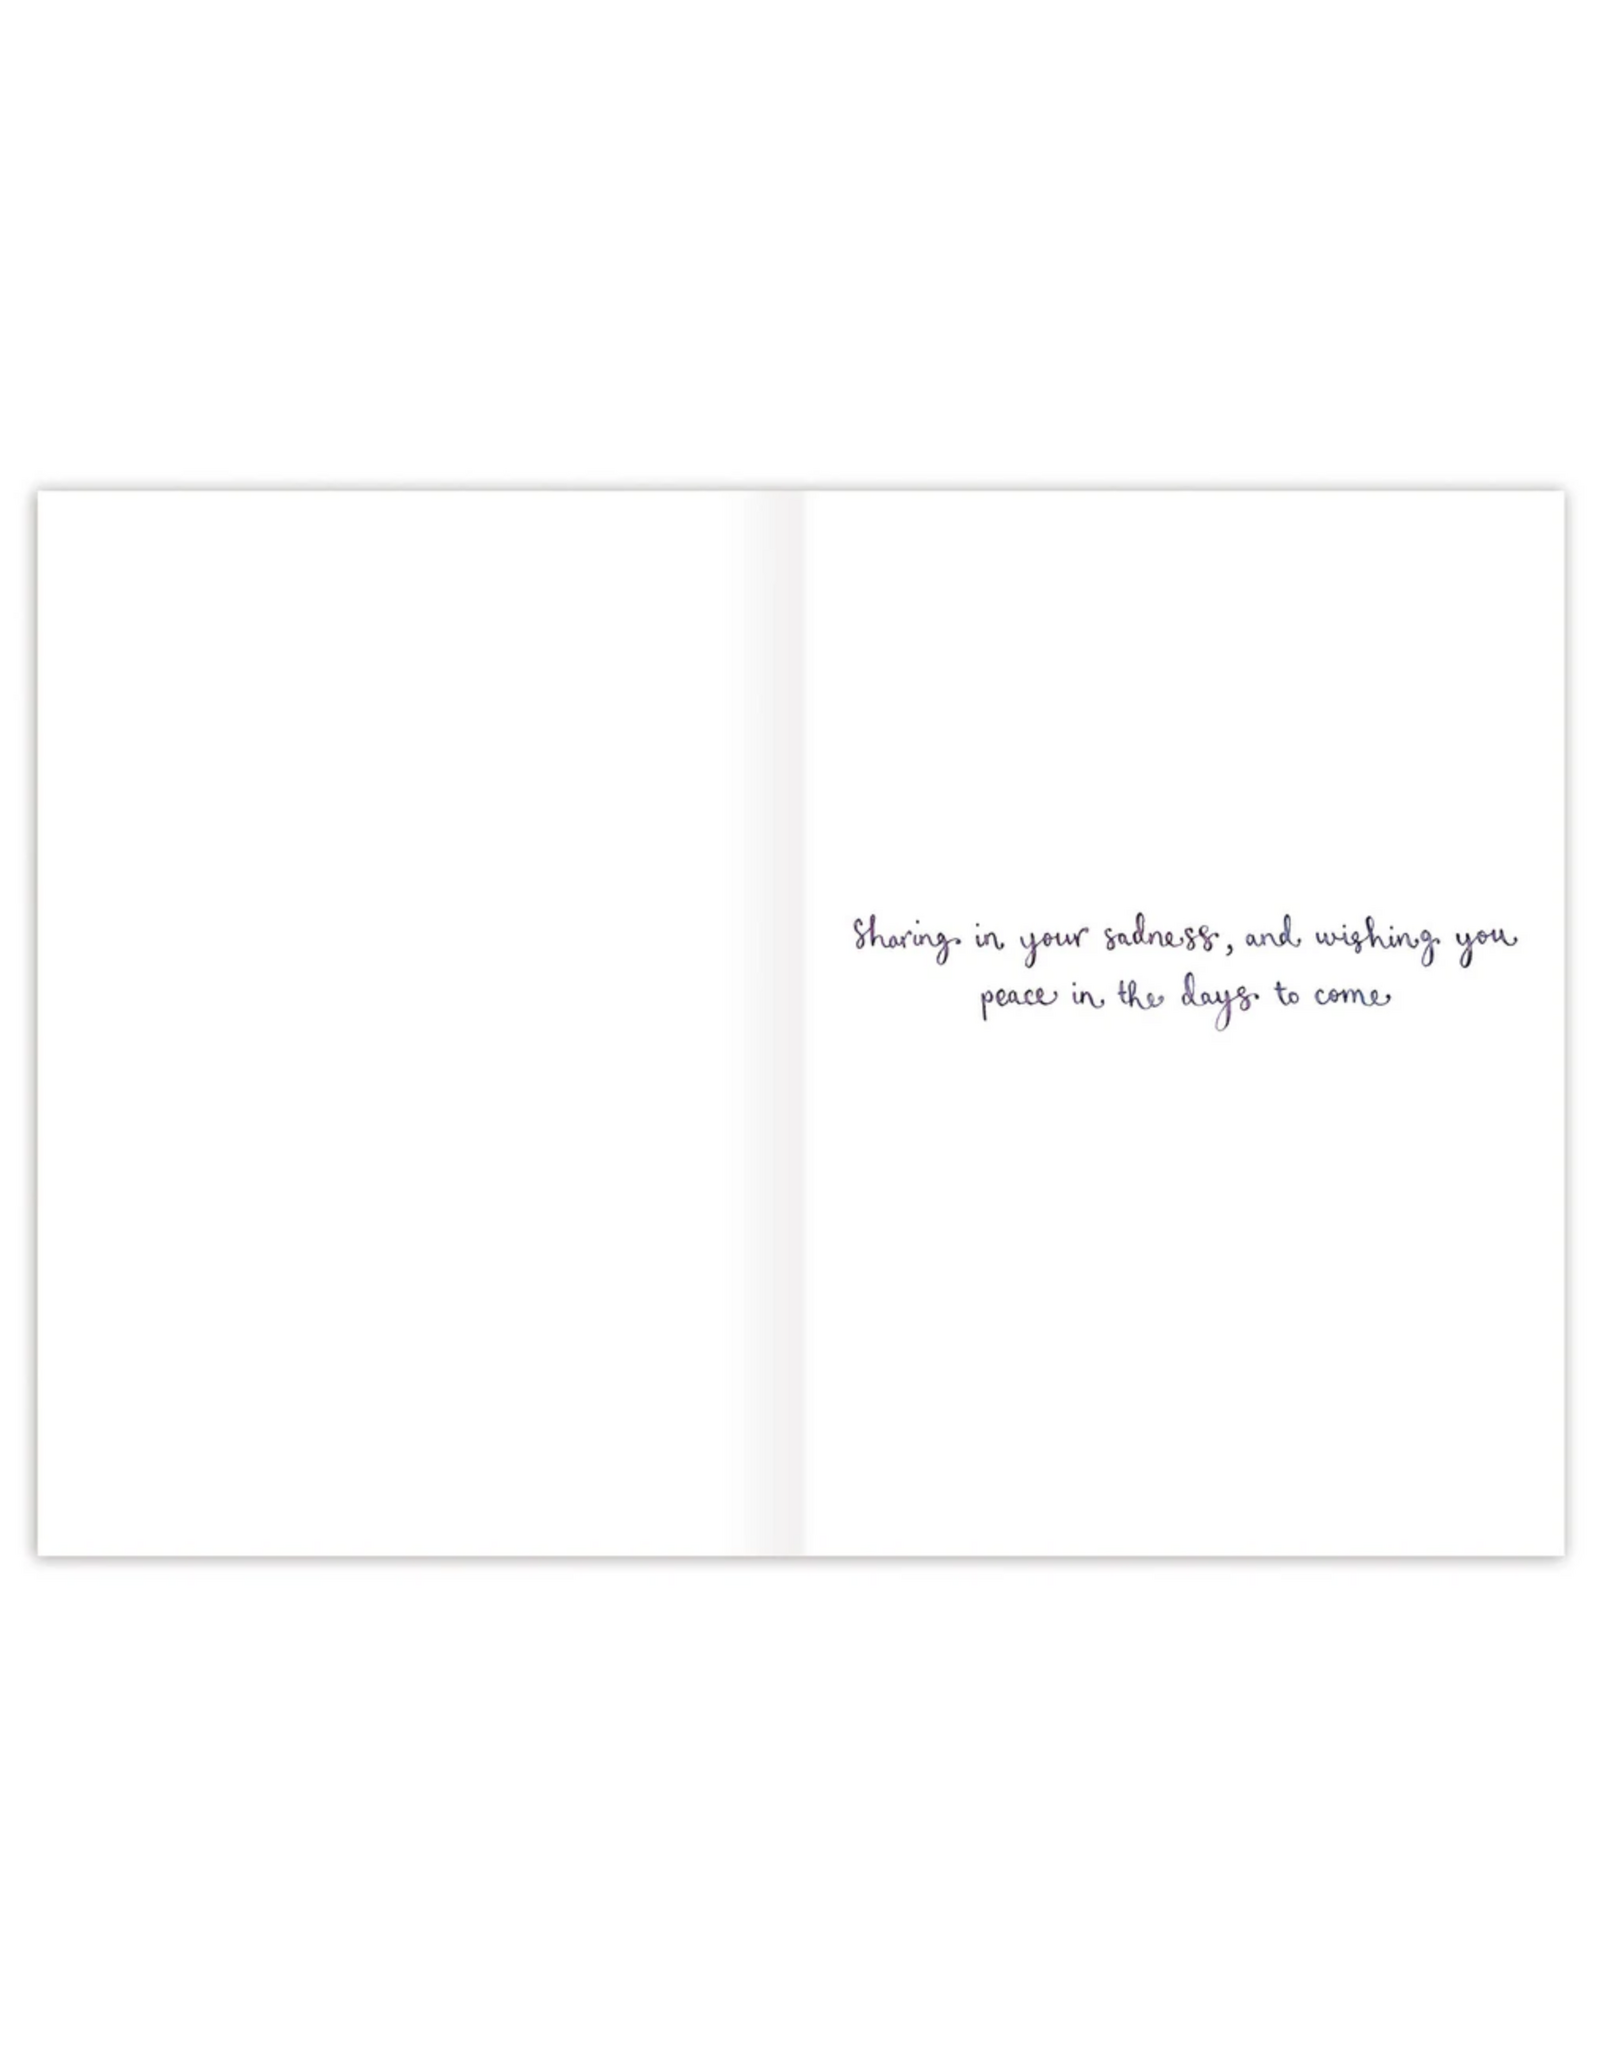 Sharing in your sadness, and wishing you
peace in the days to come